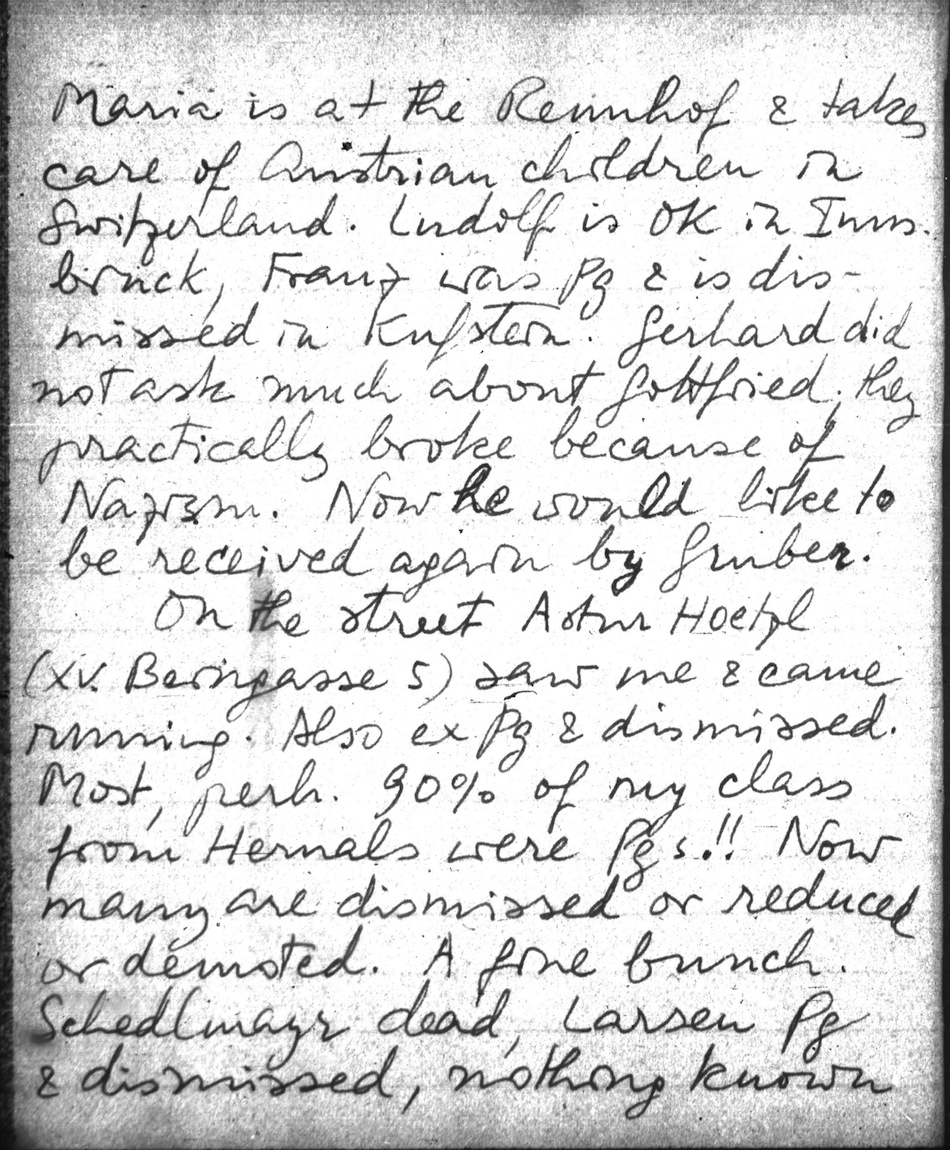 Maria is at the Rennhof & takes
care of Austrian children in
Switzerland. Ludolf is OK in Inns-
bruck, Franz was Pg & is dis-
missed in Kufstein. Gerhard did
not ask much about Gottfried; they
practically broke because of
Nazism. Now he would like to
be received again by Gruber.
On the street Artur Hoetzl
(XV. Beingasse 5) saw me & came
running. Also ex Pg & dismissed.
Most, perh. 90% of my class
from Hernals were Pgs!! Now
many are dismissed or reduced
or demoted. A fine bunch.
Schedlmayr dead, Larsen Pg
& dismissed, nothing known